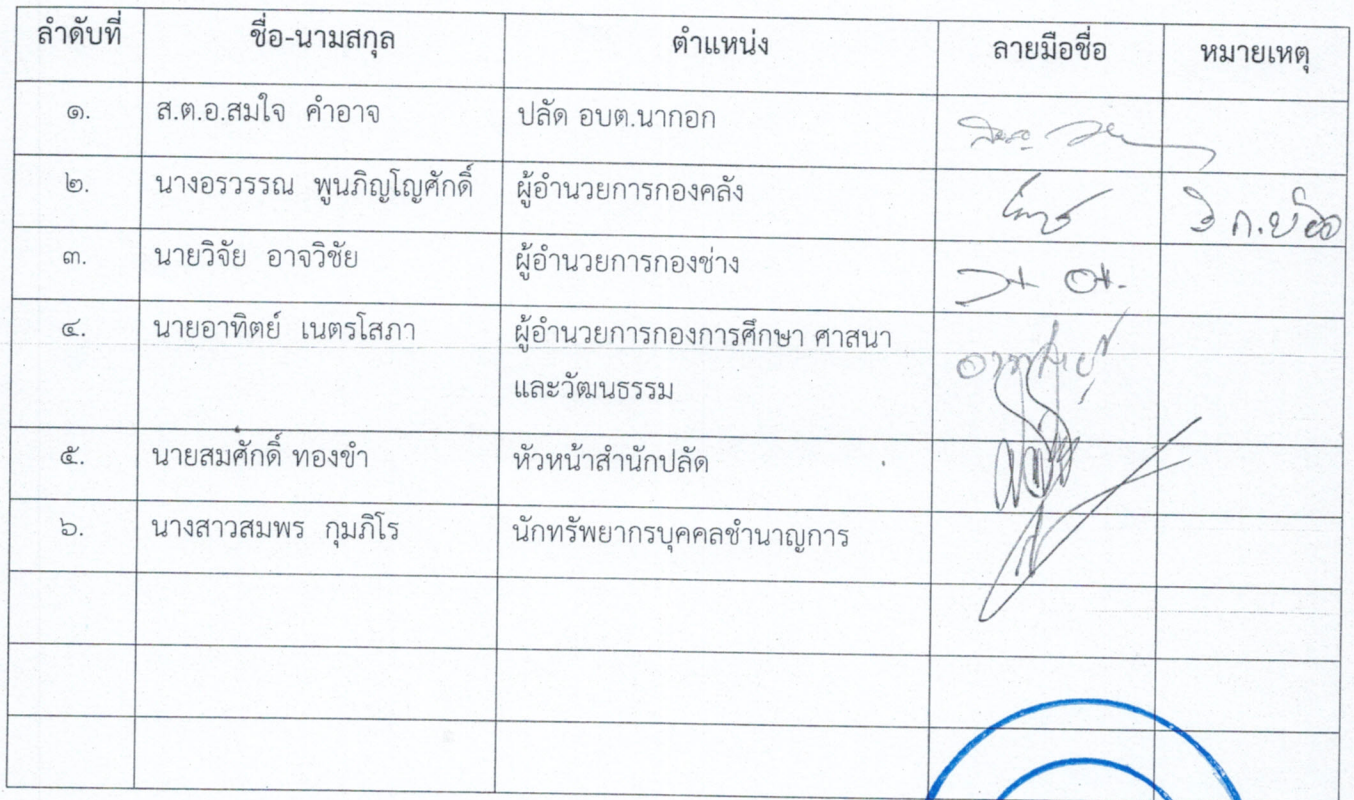 ลำดับที่ ชื่อ-นามสกุล ตำแหน่ง ลายมือชื่อ หมายเหตุ
๑. ส.ต.อ.สมใจ คำอาจ ปลัด อบต.นากอก
๒. นางอรวรรณ พูนภิญโญศักดิ์ ผู้อำนวยการกองคลัง
๓. นายวิจัย อาจวิชัย ผู้อำนวยการกองช่าง
๔. นายอาทิตย์ เนตรโสภา ผู้อำนวยการกองการศึกษา ศาสนา
และวัฒนธรรม
๕. นายสมศักดิ์ ทองขำ หัวหน้าสำนักปลัด
๖. นางสาวสมพร กุมภิโร นักทรัพยากรบุคคลชำนาญการ